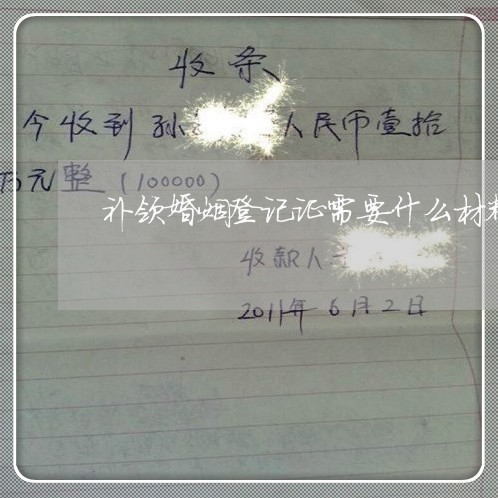 收条
今收到孙 人民币壹拾
万元整(100000)
补领婚姻登记证需要什么材料
收款人
2011年6月2日